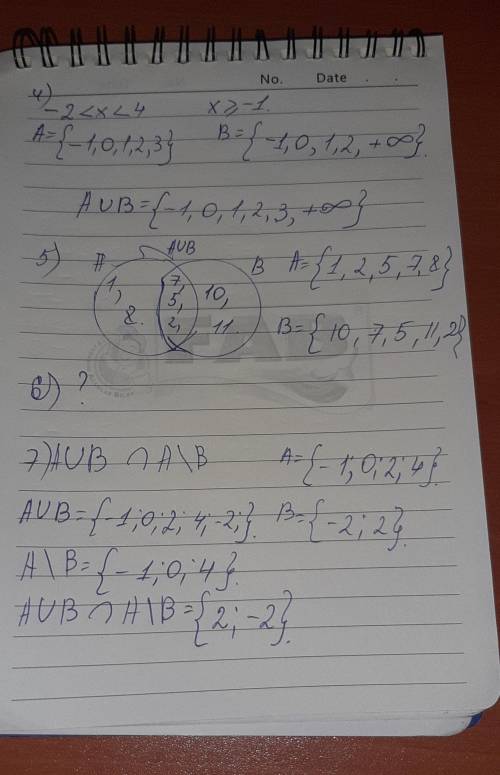 No. Date
4)
-2<x<4 x⩾-1.
A={-1,0,1,2,3} B={-1,0,1,2,+∞}.
A∪B={-1,0,1,2,3,+∞}
5) A A∪B B A={1,2,5,7,8}
1, 7, 10,
8. 5, 11.
2, B={10,7,5,11,2}
FAB
6) ?
7) A∪B ∩ A\B A={-1;0;2;4}.
A∪B={-1;0;2;4;-2;}. B={-2;2}.
A\B={-1;0;4}.
A∪B ∩ A\B={2;-2}.